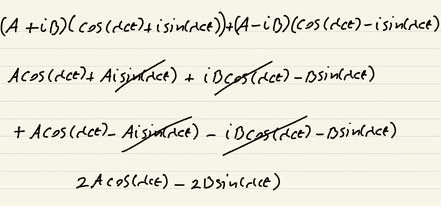 (A + iB)(cos(λct)+isin(λct))+(A-iB)(cos(λct)-isin(λct)
Acos(λct)+ Aisin(λct) + iBcos(λct) - Bsin(λct)
+ Acos(λct)- Aisin(λct) - iBcos(λct) -Bsin(λct)
2Acos(λct) - 2Bsin(λct)